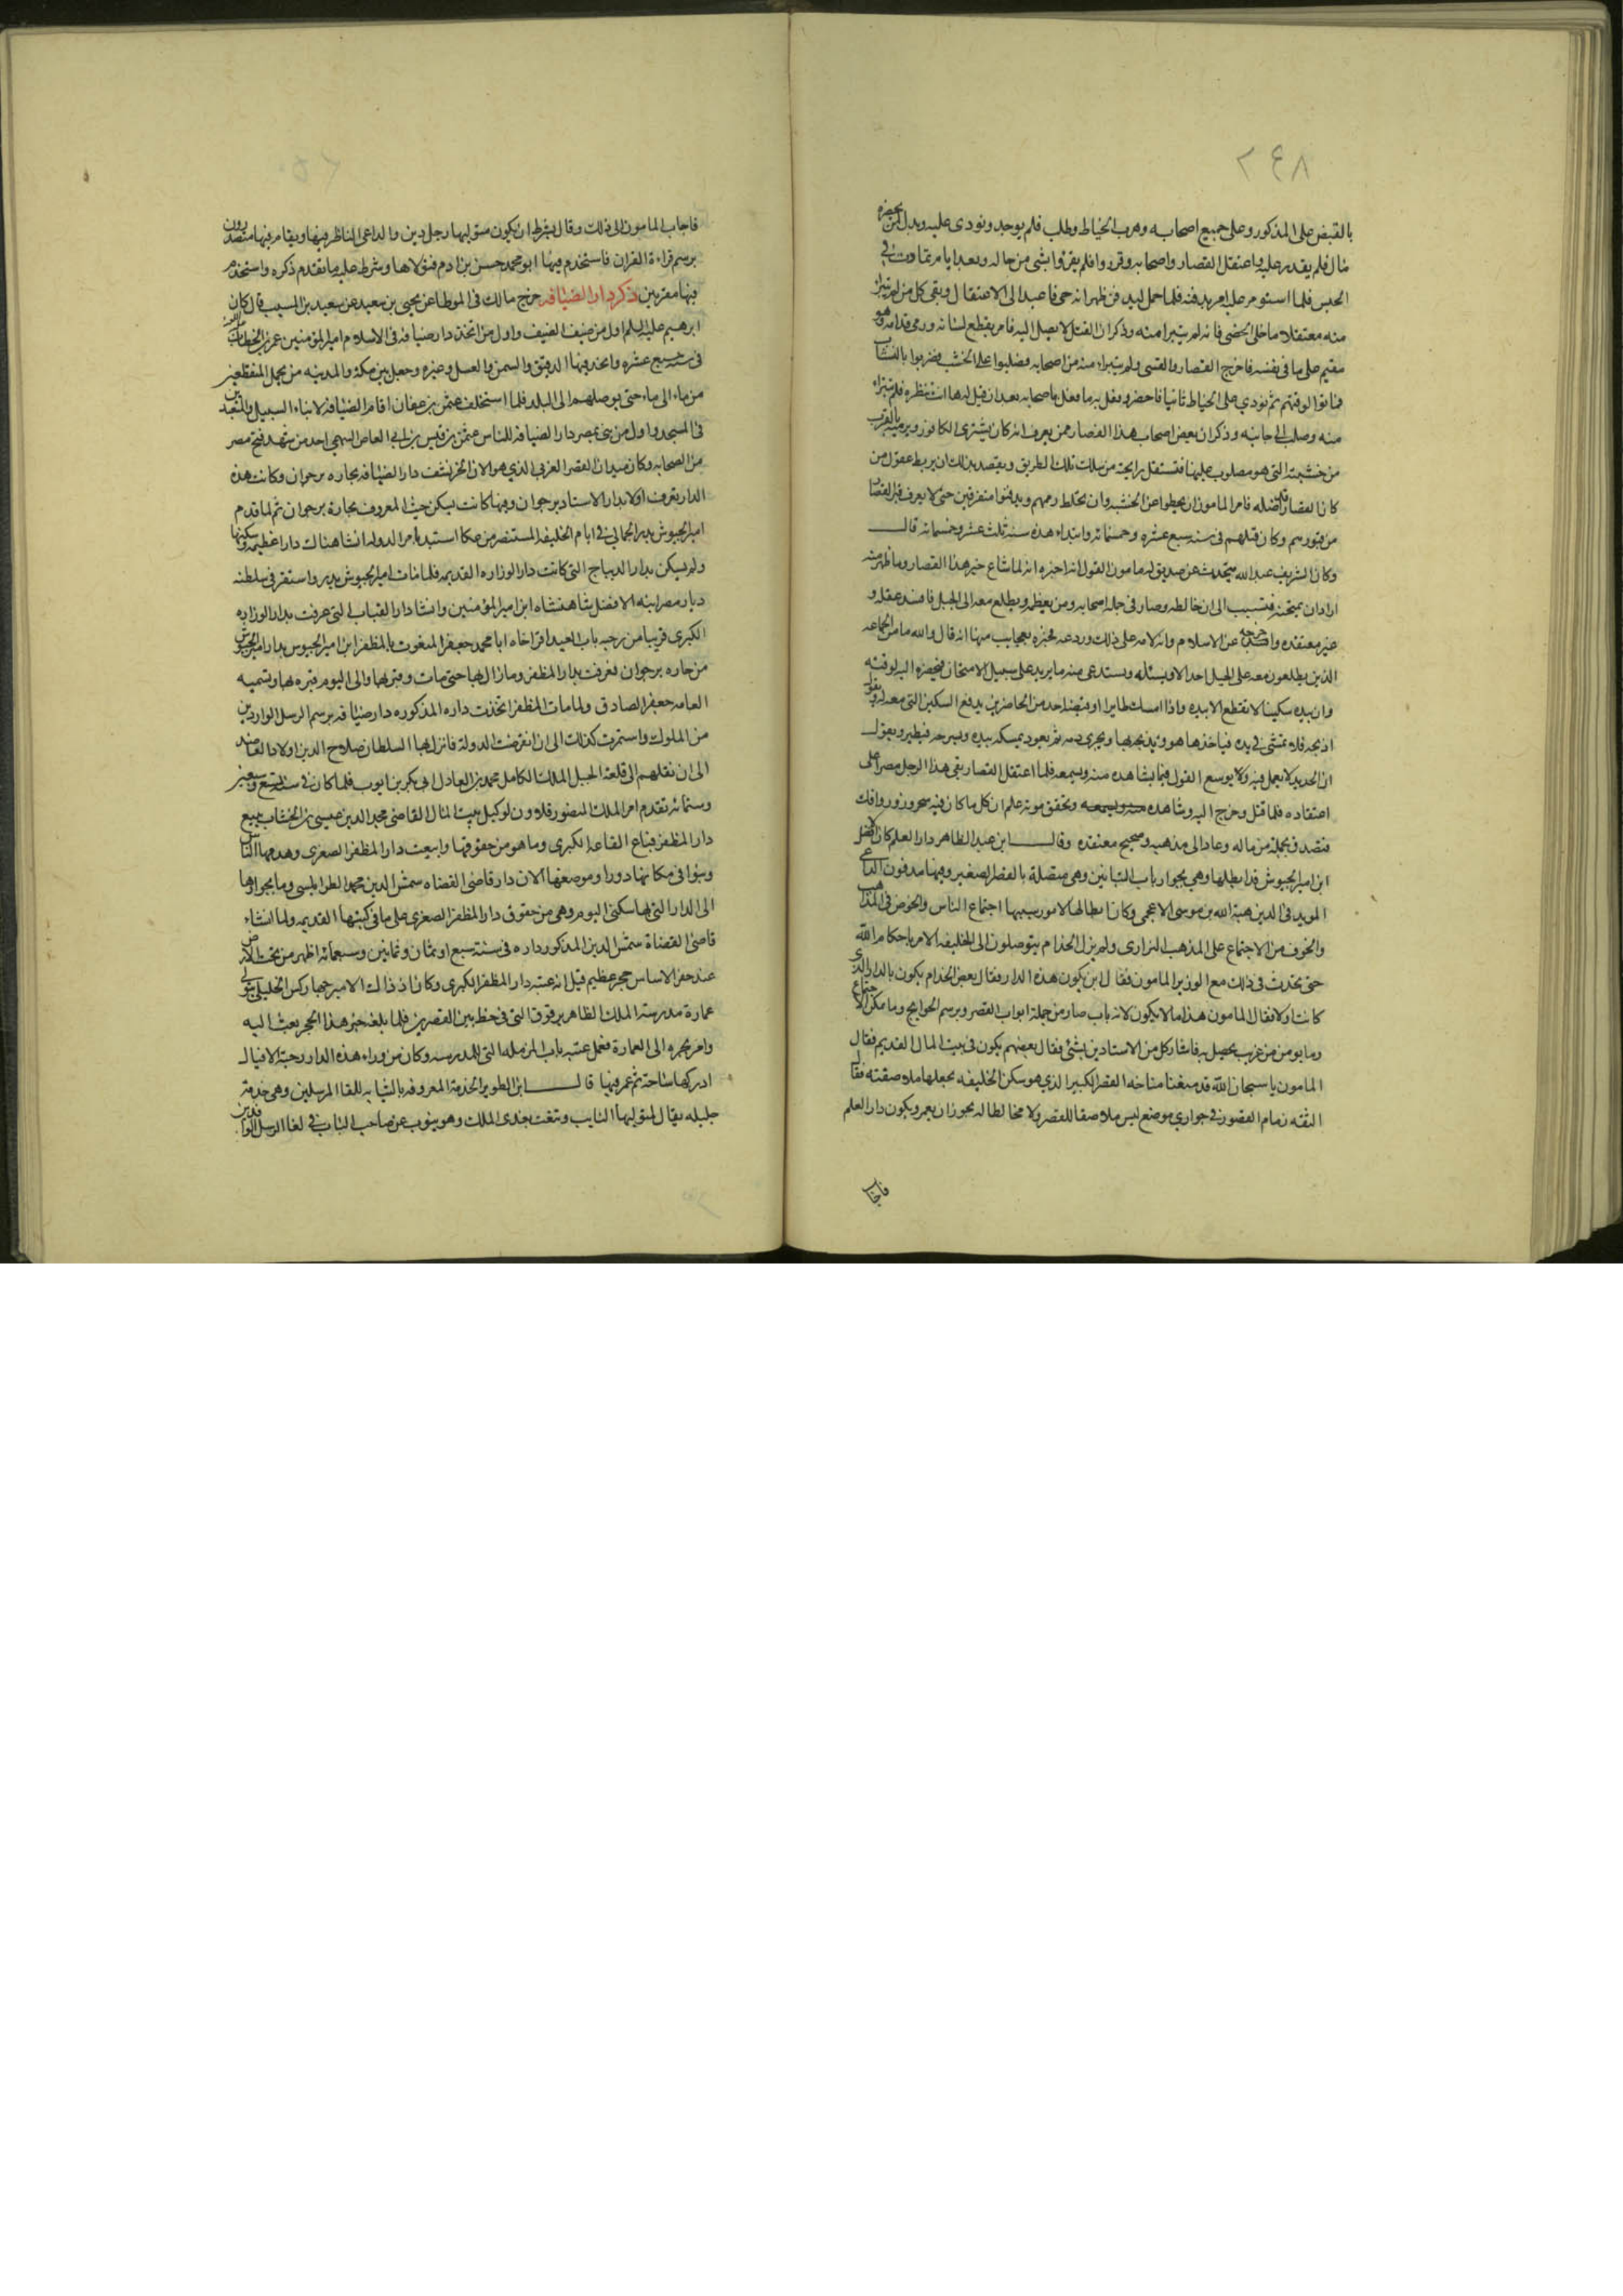 ٢٤٨
بالقبض على المذكور وعلى جميع اصحابه وهرب الخياط وطلب فلم يوجد ونودى عليه وبدل لمن يحضره
مال فلم يقدر عليه واعتقل القصار واصحابه وقرروا فلم يقروا بشى من حاله وبعد ايام تماوت في
الحبس فلما استومر عليه امر بدفنه فلما حمل ليدفن ظهر انه حي فاعيد الى الاعتقال وبقى كل من لم يتبرا
منه معتقلا ما خلى الخصى فانه لم يتبرا منه وذكر ان القتل لا يصل اليه فامر بقطع لسانه ورمى قدامه وهو
مقيم على ما في نفسه فاخرج القصار والخصى ولم يتبراء منه من اصحابه وصلبوا على الخشب وضربوا بالنشاب
فماتوا لوقتهم ثم نودي على الخياط ثانيا فاحضر وفعل به ما فعل باصحابه بعد ان قيل له ها انت تنظره فلم يتبراء
منه وصلب الى جانبه وذكر ان بعض اصحاب هذا القصار ممن يعرف انه كان يشترى الكافور ويرميه بالقرب
من خشبته التى هو مصلوب عليها فتستقبل رايحته من سلك تلك الطريق ويقصد بذلك ان يربط عقول من
كان القصار قد اضله فامر المامون ان يحطوا عن الخشبه وان يخلط رممهم ويدفنوا متفرقين حتى لا يعرف قبر القصار
من قبورهم وكان قتلهم فى سنه سبع عشره وخمسمائه وابتداء هذه سنه ثلث عشر وخمسمائه قال
وكان الشريف عبد الله يتحدث عن صديق له مامون القول انه اخبره انه لما شاع خبر هذا القصار وما ظهر منه
اراد ان يمتحنه فتسبب الى ان خالطه وصار فى جمله اصحابه ومن يعظمه ويطلع معه الى الجبل فافسد عقله و
غير معتقده واخرجه عن الاسلام وانه لامه على ذلك وردعه فخبره بعجايب منها انه قال والله ما من الجماعه
الذين يطلعون معه على الجبل احد الا ويسئله ويستدعى منه ما يريد على سبيل الامتحان فيحضره اليه لوقته
وان بيده سكينا لا تقطع الا بيده واذا امسك طايرا وقبضه احد من الحاضرين يدفع السكين التى معه له ويقول
اذبحه فلا تمشى فى يده فياخذها هو ويذبحه بها ويجرى دمه ثم يعود يمسكه بيده ويسرحه فيطير ويقول
ان الحديد لا يعمل فيه ولا يوسع القول فيما يشاهده منه ويسمعه فلما اعتقل القصار بقى هذا الرجل مصرا على
اعتقاده فلما قتل وخرج اليه وشاهده وتحقق موته علم ان كل ما كان فيه سحر وزور وافك
فتصدق بجمله من ماله وعاد الى مذهبه وصحيح معتقده وقال ابن عبد الظاهر دار العلم كان الافضل
ابن امير الجيوش قد ابطلها وهي بجوار باب التبانين وهي متصلة بالقصر الصغير وفيها مدفون الداعى
المويد فى الدين هبة الله بن موسى الاعجمى وكان ابطالها لامور سببها اجتماع الناس والخوض فى المذاهب
والخوف من الاجتماع على المذهب النزارى ولم يزل الخدام يتوصلون الى الخليفه الامر باحكام الله
حتى تحدث فى ذلك مع الوزير المامون فقال اين يكون هذه الدار فقال بعض الخدام يكون بالدار التى
كانت اولا فقال المامون هذا ما لا يكون لانه باب صار من جملة ابواب القصر وبرسم الحوايج وما يمكن الاجتماع
وما يومن من غريب يحصل به فاشار كل من الاستادين بشئ فقال بعضهم يكون فى بيت المال القديم فقال
المامون يا سبحان الله قد منعنا متاخه القصر الكبير الذي هو سكن الخليفه نجعلها ملاصقته فقال
الثقه زمام القصور فى جوارى موضع ليس ملاصقا للقصر ولا مخالطا له يجوز ان يعمر ويكون دار العلم
فاجاب
فاجاب المامون الى ذلك وقال بشرط ان يكون متوليها رجل دين والداعى الناظر فيها ويقام فيها متصدرون
برسم قراءة القران فاستخدم فيها ابو محمد حسن بن ادم فتولاها وشرط عليه ما تقدم ذكره واستخدم
فيها مقريين ذكر دار الضيافه خرج مالك فى الموطا عن يحيى بن سعيد عن سعيد بن المسيب قال كان
ابرهيم عليه السلم اول من ضيف الضيف واول من اتخذ دار ضيافه فى الاسلام امير المؤمنين عمر بن الخطاب
فى سنه سبع عشره واتخذ فيها الدقيق والسمن والعسل وغيره وجعل بين مكة والمدينه من يحمل المنقطعين
من ماء الى ماء حتى يوصلهم الى البلد فلما استخلف عثمن بن عفان اقام الضيافه لابناء السبيل والمتعبدين
فى المسجد واول من بنى بمصر دار الضيافه للناس عثمن بن قيس بن ابى العاص السهمى احد من شهد فتح مصر
من الصحابه وكان ميدان القصر الغربى الذي هو الان الخرنشف دار الضيافه بحاره برجوان وكانت هذه
الدار تعرف اولا بدار الاستاد برجوان وفيها كانت يسكن حيث المعروف بحارة برجوان ثم لما قدم
امير الجيوش بدر الجمالى فى ايام الخليفه المستنصر من عكا استبد بامر الدوله انشا هناك دارا عظيمه وسكنها
ولم يسكن بدار الديباج التى كانت دار الوزاره القديمه فلما مات امير الجيوش بدر واستقر فى سلطنه
ديار مصر ابنه الافضل شاهنشاه ابن امير المؤمنين وانشا دار القباب التى عرفت بدار الوزاره
الكبرى قريبا من رحبه باب العيد اقر اخاه ابا محمد جعفر المنعوت بالمظفر ابن امير الجيوش بدار امير الجيوش
من حاره برجوان فعرفت بدار المظفر وما زال بها حتى مات وقبر بها والى اليوم قبره بها وتسميه
العامه جعفر الصادق ولما مات المظفر اتخذت داره المذكوره دار ضيافه برسم الرسل الواردين
من الملوك واستمرت كذلك الى ان انقرضت الدولة فانزل بها السلطان صلاح الدين اولاد العاضد
الى ان نقلهم الى قلعة الجبل الملك الكامل محمد بن العادل ابى بكر بن ايوب فلما كان فى سنه تسع وسبعين
وستمائه تقدم امر الملك المنصور قلاوون لوكيل بيت المال القاضى مجد الدين عيسى بن الخشاب ببيع
دار المظفر فباع القاعه الكبرى وما هو من حقوقها وابيعت دار المظفر الصغرى وهدمها الناس
وبنوا فى مكانها دورا وموضعها الان دار قاضى القضاه شمس الدين محمد الطرابلسى وما بجوارها
الى الدار التى بها سكنى اليوم وهى من حقوق دار المظفر الصغرى على ما فى كتبها القديمه ولما انشاء
قاضى القضاة شمس الدين المذكور داره فى سنة سبع او ثمان وثمانين وسبعمائه اظهر من تحت الارض
عند حفر الاساس حجر عظيم قيل انه عتبه دار المظفر الكبرى وكان اذ ذاك الامير جهاركس الخليلى يتولى
عمارة مدرسة الملك الظاهر برقوق التى فى خط بين القصرين فلما بلغه خبر هذا الحجر بعث اليه
وامر بجره الى العمارة فعمل عتبه باب المزمله التى للمدرسه وكان من وراء هذه الدار رحبة الافيال
ادركتها ساحة ثم عمر فيها قال ابن الطوير الخدمة المعروفه بالنيابه للقا المرسلين وهى خدمة
جليله يقال لمتوليها النايب وتنعت بعدى الملك وهو ينوب عن صاحب الباب فى لقا الرسل الوافدين